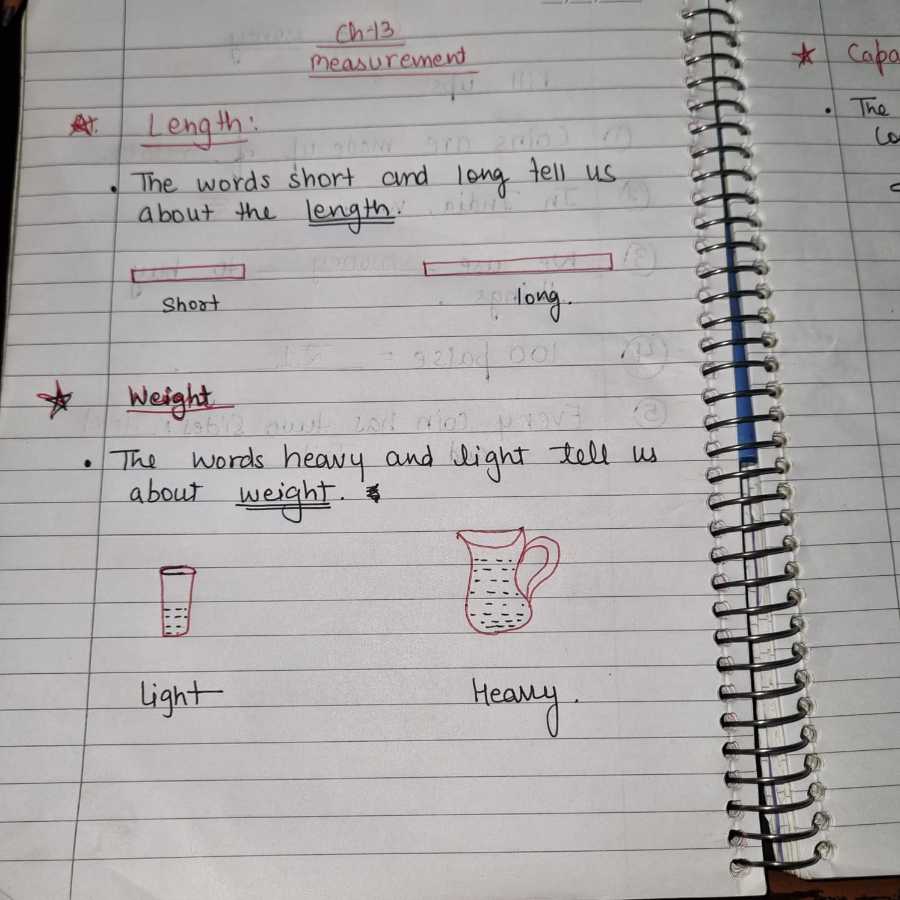 Ch-13
Measurement
Length:
• The words short and long tell us
about the length.
Short
long.
Weight
• The words heavy and light tell us
about weight.
Light
Heavy.
• The